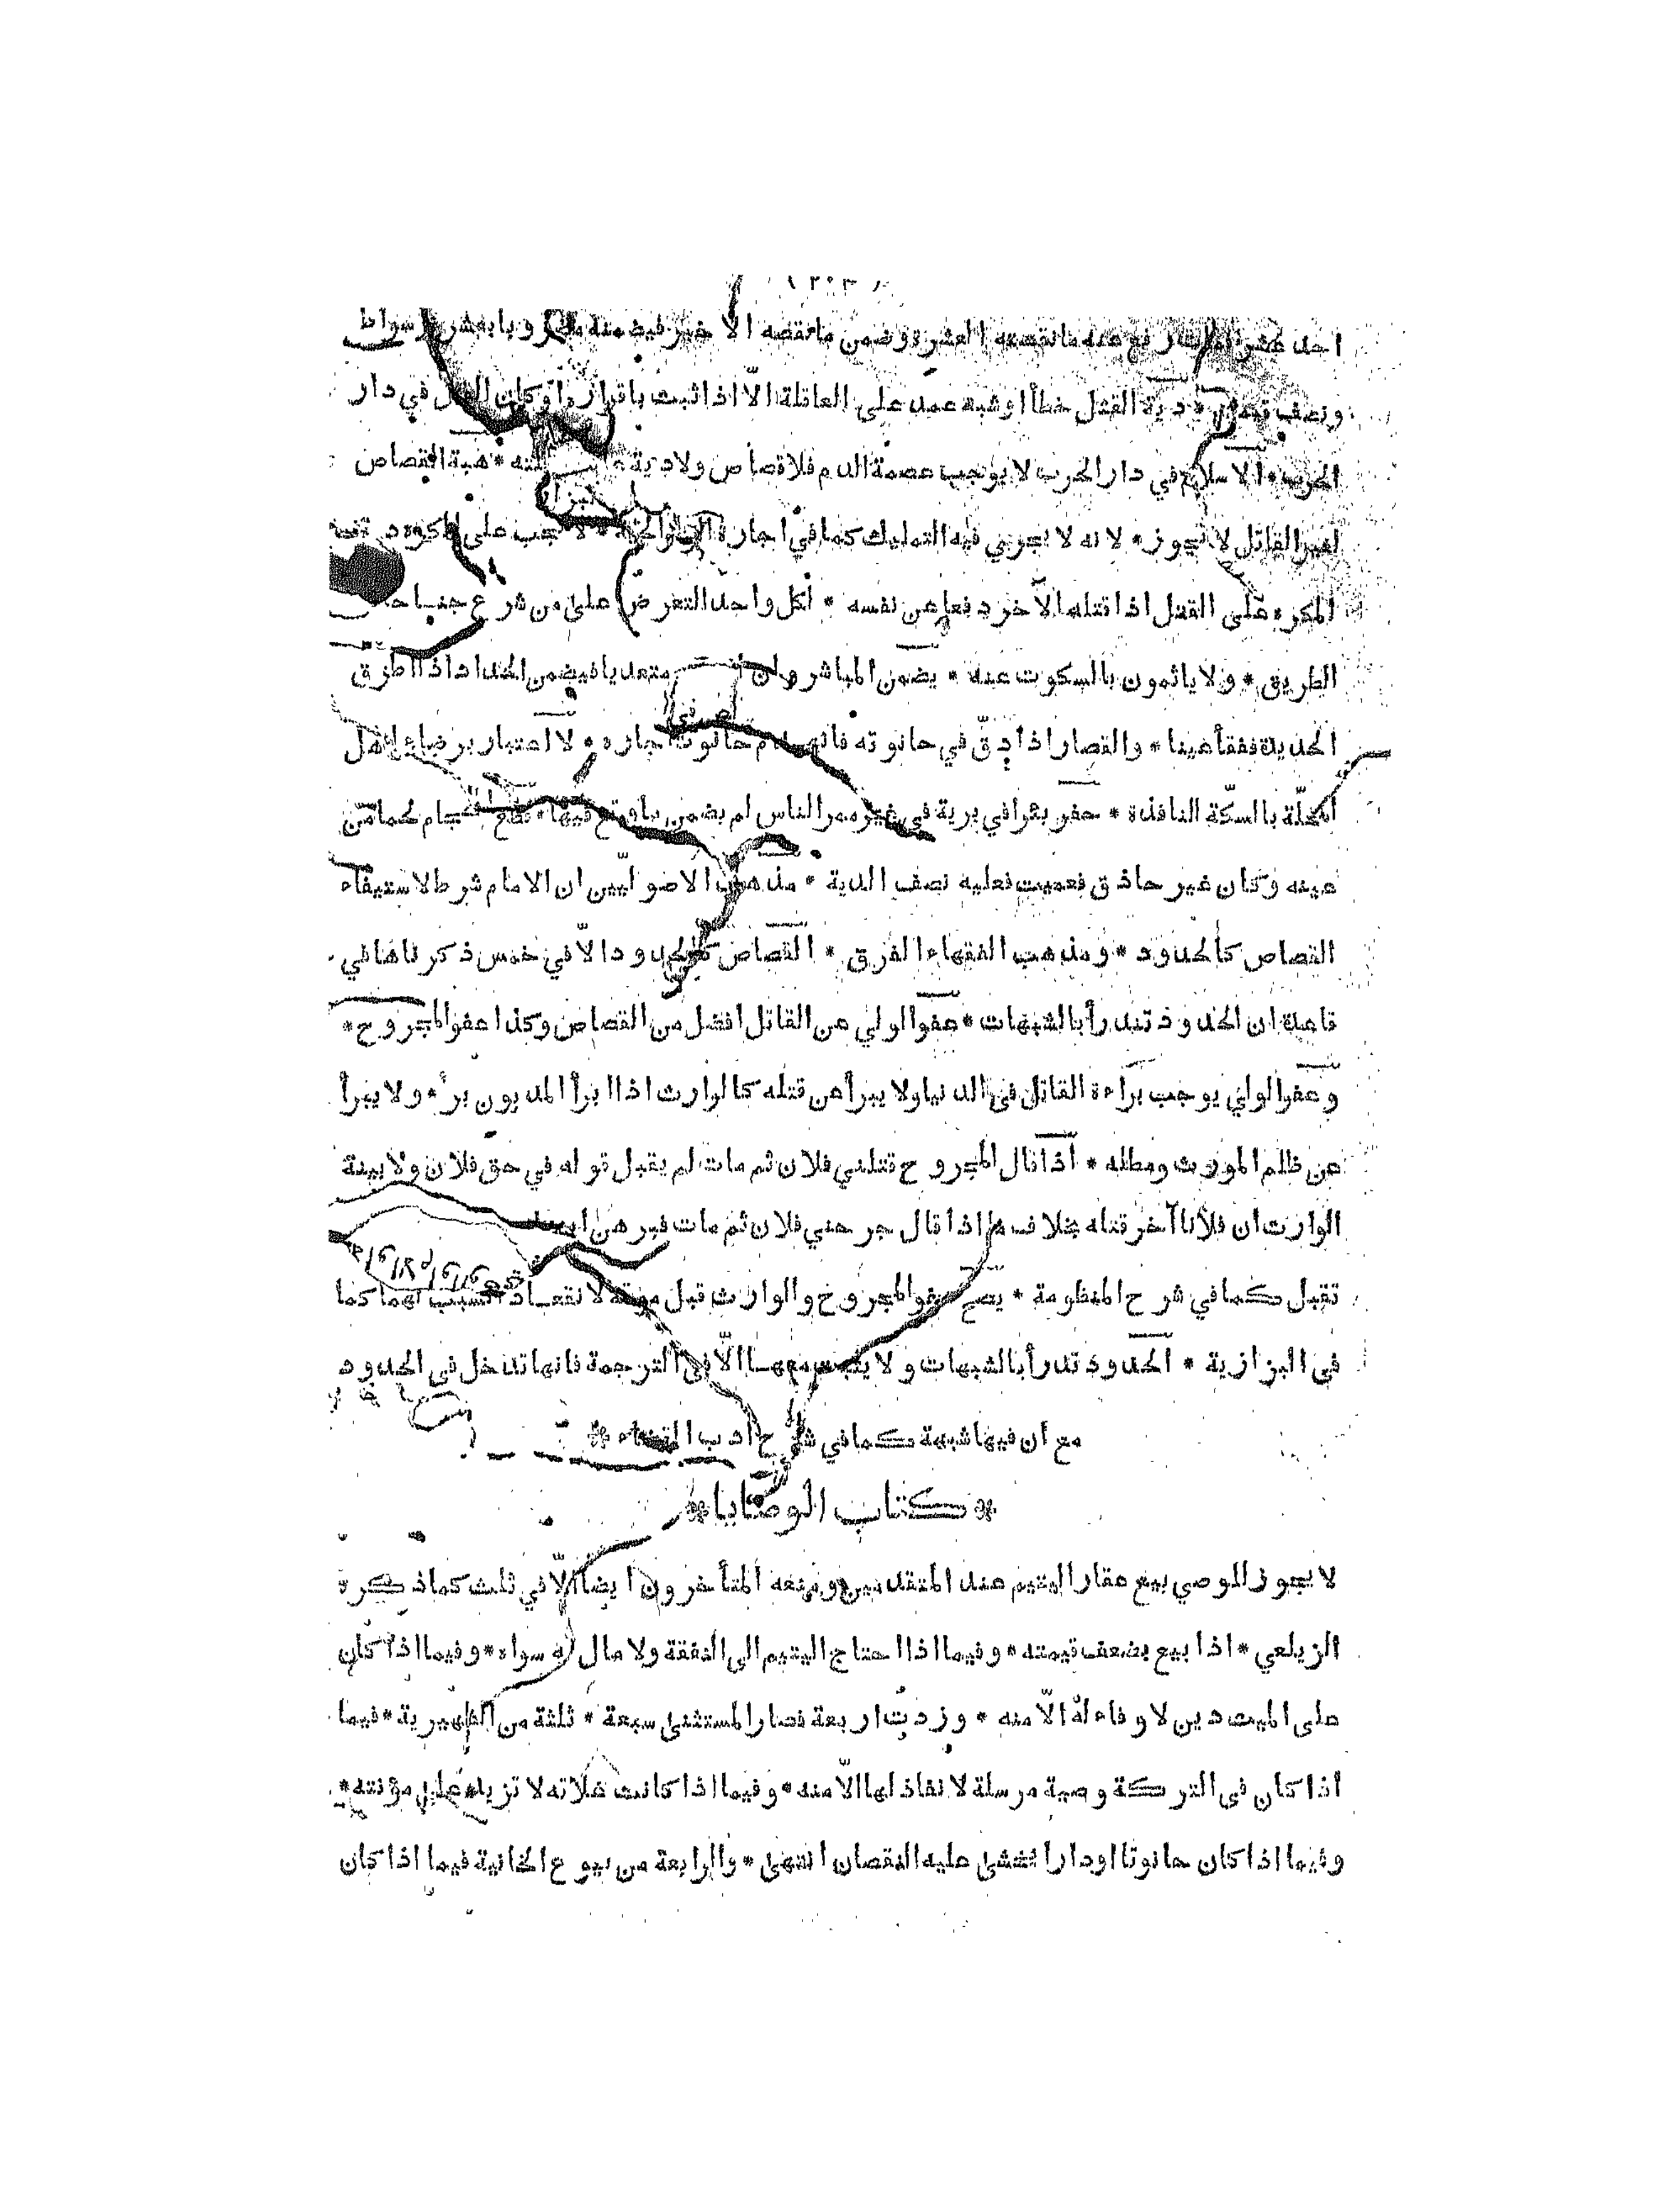 احد عشر فمات رفع عنه ما نقصته العشرة وضمن ما نقصه الاخير فيضمنه مضروبا بعشرة اسواط
ونصف قيمته * دية القتل خطأ او شبه عمد على العاقلة الّا اذا ثبت باقراره او كان القتل في دار
الحرب * الاسلام في دار الحرب لا يوجب عصمة الدم فلا قصاص ولا دية * هبة القصاص
لغير القاتل لا تجوز * لانه لا يجري فيه التمليك كما في اجارة * لا تجب على المكره دية
المكره على القتل اذا قتله الآخر دفعا عن نفسه * لكل واحد التعرض على من شرع جناحا
الطريق * ولا ياثمون بالسكوت عنه * يضمن المباشر وان متعديا فيضمن الحداد اذا طرق
الحديدة ففقأ عينا * والقصار اذا دقّ في حانوته فانهدم حانوت جاره * لا اعتبار برضاء اهل
المحلّة بالسكّة النافذة * حفر بئرا في برية في غير ممر الناس لم يضمن ما وقع فيها * قطع الحجام لحما من
عينه وكان غير حاذق فعميت فعليه نصف الدية * مذهب الاصوليين ان الامام شرط لاستيفاء
القصاص كالحدود * ومذهب الفقهاء الفرق * القصاص كالحدود الّا في خمس ذكرناها في
قاعدة ان الحدود تدرأ بالشبهات * عفو الولي عن القاتل افضل من القصاص وكذا عفو المجروح *
وعفو الولي يوجب براءة القاتل في الدنيا ولا يبرأ عن قتله كالوارث اذا ابرأ المديون برأ * ولا يبرأ
عن ظلم المورث ومطله * اذا قال المجروح قتلني فلان ثم مات لم يقبل قوله في حق فلان ولا بينة
الوارث ان فلانا آخر قتله بخلاف ما اذا قال جرحني فلان ثم مات فبرهن ابنه
تقبل كما في شرح المنظومة * يصح عفو المجروح والوارث قبل موته لانعقاد السبب لهما كما
في البزازية * الحدود تدرأ بالشبهات ولا يثبت معها الّا في الترجمة فانها تدخل في الحدود
مع ان فيها شبهة كما في شرح ادب القضاء *
* كتاب الوصايا *
لا يجوز للوصي بيع عقار اليتيم عند المتقدمين ومنعه المتأخرون ايضا الّا في ثلث كما ذكره
الزيلعي * اذا بيع بضعف قيمته * وفيما اذا احتاج اليتيم الى النفقة ولا مال له سواه * وفيما اذا كان
على الميت دين لا وفاء له الّا منه * وزدت اربعة فصار المستثنى سبعة * ثلثة من الظهيرية * فيما
اذا كان في التركة وصية مرسلة لا نفاذ لها الّا منه * وفيما اذا كانت غلاته لا تزيد على مؤنته *
وفيما اذا كان حانوتا او دارا يخشى عليه النقصان انتهى * والرابعة من بيوع الخانية فيما اذا كان